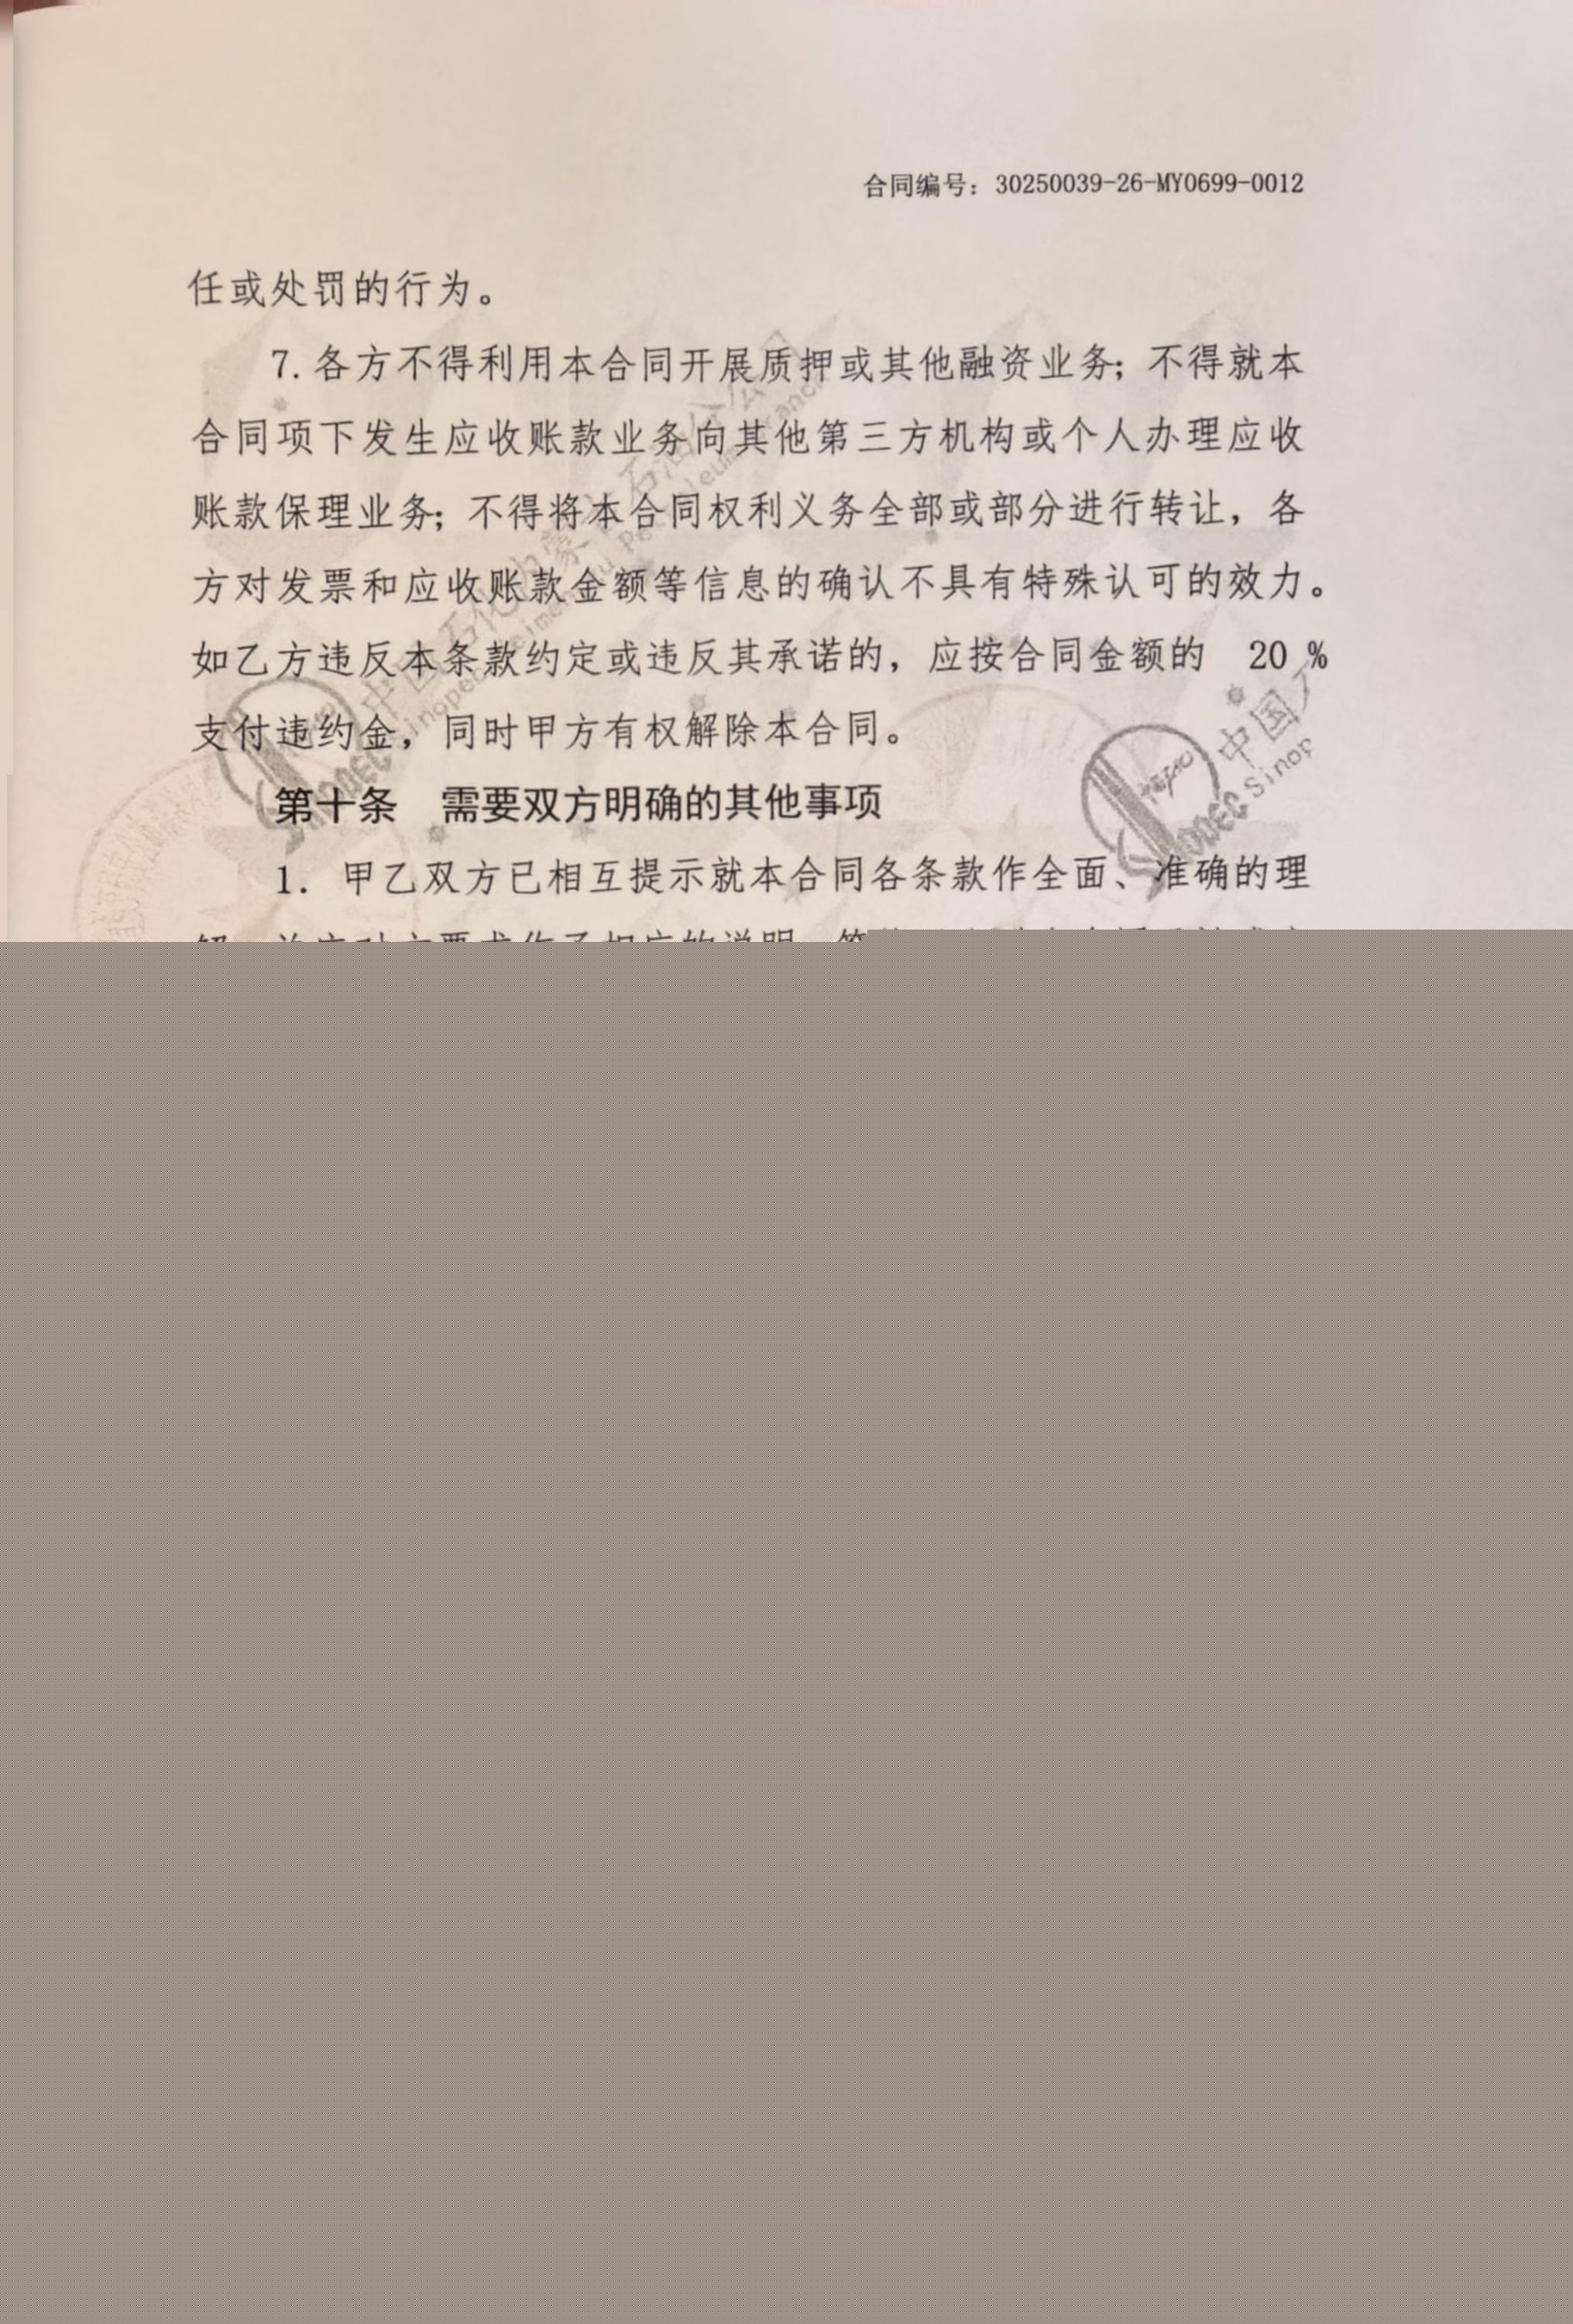 合同编号：30250039-26-MY0699-0012
任或处罚的行为。
7. 各方不得利用本合同开展质押或其他融资业务；不得就本
合同项下发生应收账款业务向其他第三方机构或个人办理应收
账款保理业务；不得将本合同权利义务全部或部分进行转让，各
方对发票和应收账款金额等信息的确认不具有特殊认可的效力。
如乙方违反本条款约定或违反其承诺的，应按合同金额的 20 %
支付违约金，同时甲方有权解除本合同。
第十条 需要双方明确的其他事项
1. 甲乙双方已相互提示就本合同各条款作全面、准确的理
中国
Sinop